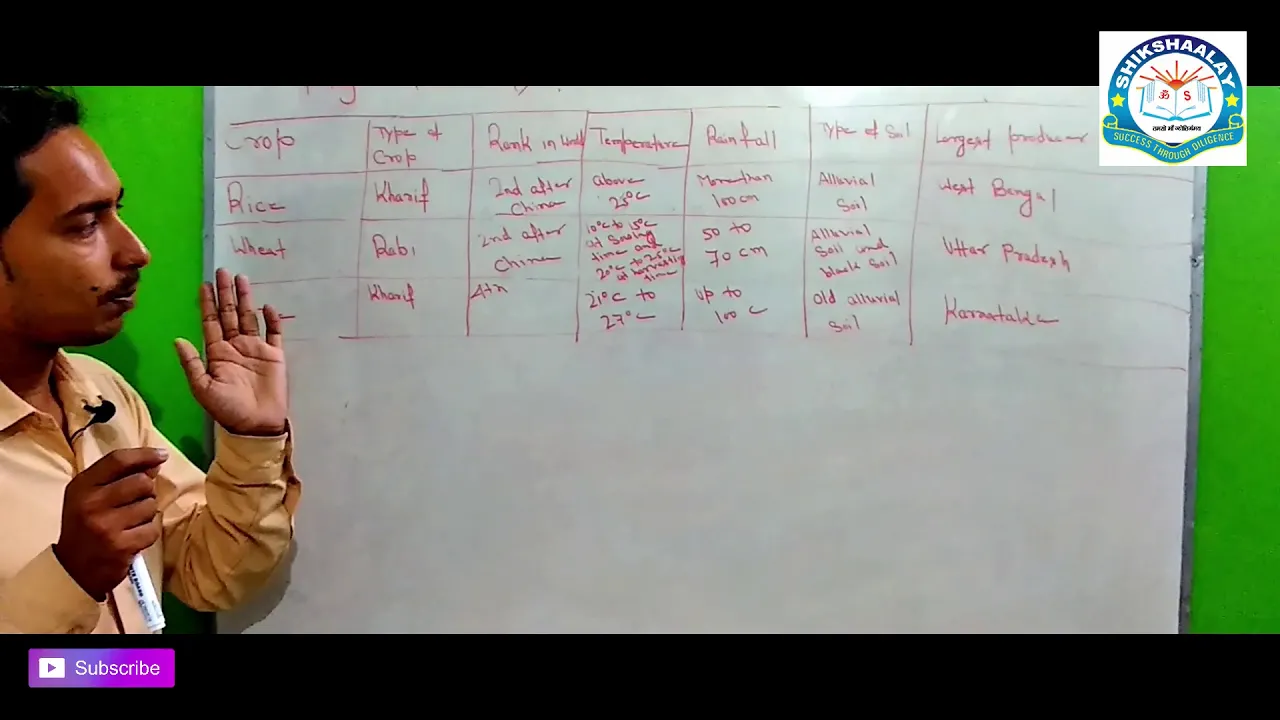 SHIKSHAALAY
ॐ S
तमसो माँ ज्योतिर्गमय
SUCCESS THROUGH DILIGENCE
Crop
Type of
Crop
Rank in World
Temperature
Rainfall
Type of Soil
Largest producer
Rice
Kharif
2nd after
China
above
25°C
More than
100 cm
Alluvial
Soil
West Bengal
Wheat
Rabi
2nd after
China
10°C to 15°C
at Sowing
time and
20°C to 25°C
at harvesting
time
50 to
70 cm
Alluvial
Soil and
black Soil
Uttar Pradesh
Kharif
4th
21°C to
27°C
up to
100 C
Old alluvial
Soil
Karnataka
Subscribe